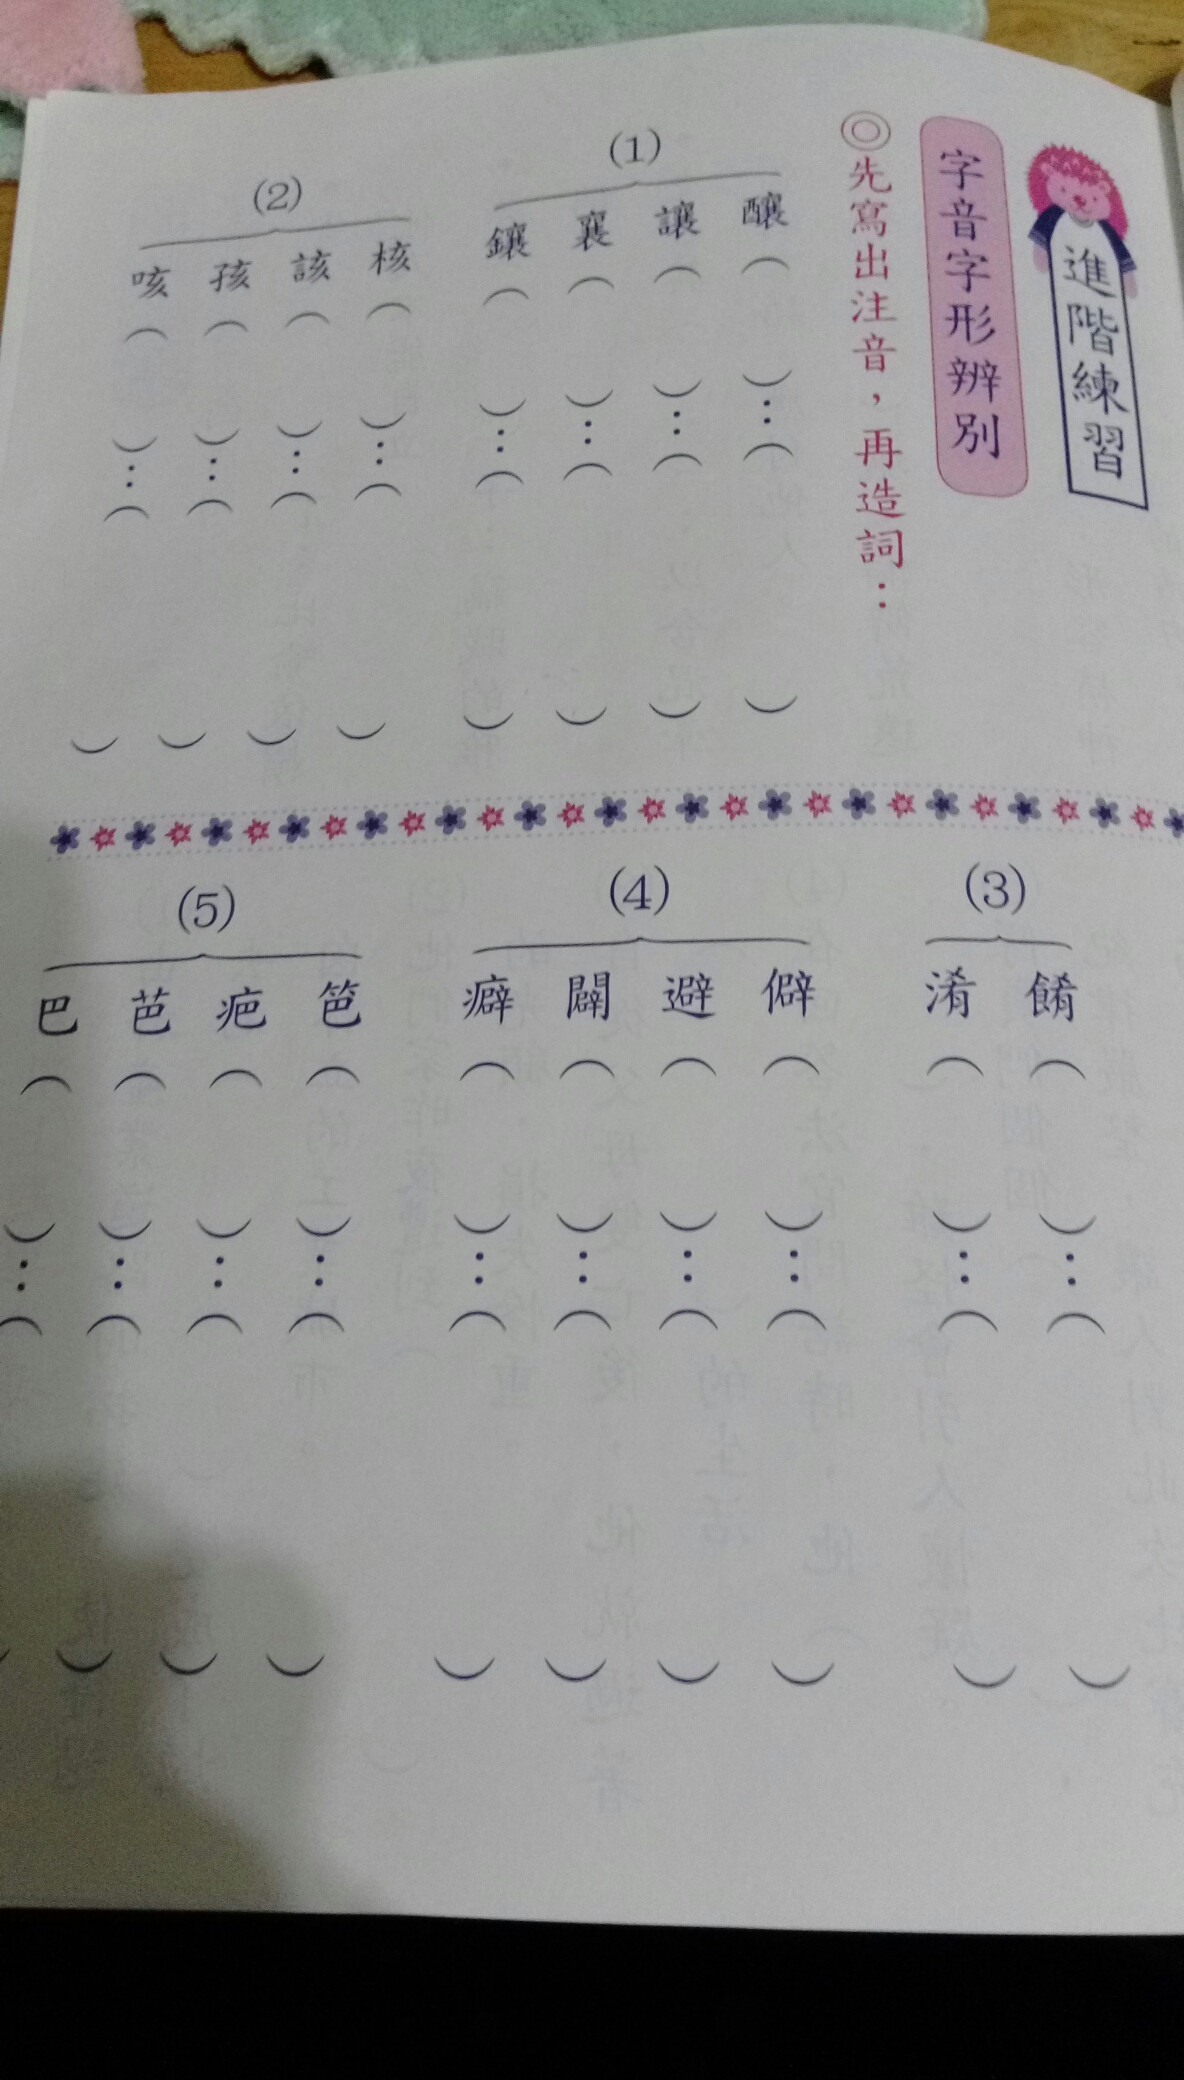 進階練習
字音字形辨別
◎先寫出注音，再造詞：
(1)
釀（　）：（　）
讓（　）：（　）
襄（　）：（　）
鑲（　）：（　）
(2)
核（　）：（　）
該（　）：（　）
孩（　）：（　）
咳（　）：（　）
(3)
餚（　）：（　）
淆（　）：（　）
(4)
僻（　）：（　）
避（　）：（　）
闢（　）：（　）
癖（　）：（　）
(5)
笆（　）：（　）
疤（　）：（　）
芭（　）：（　）
巴（　）：（　）